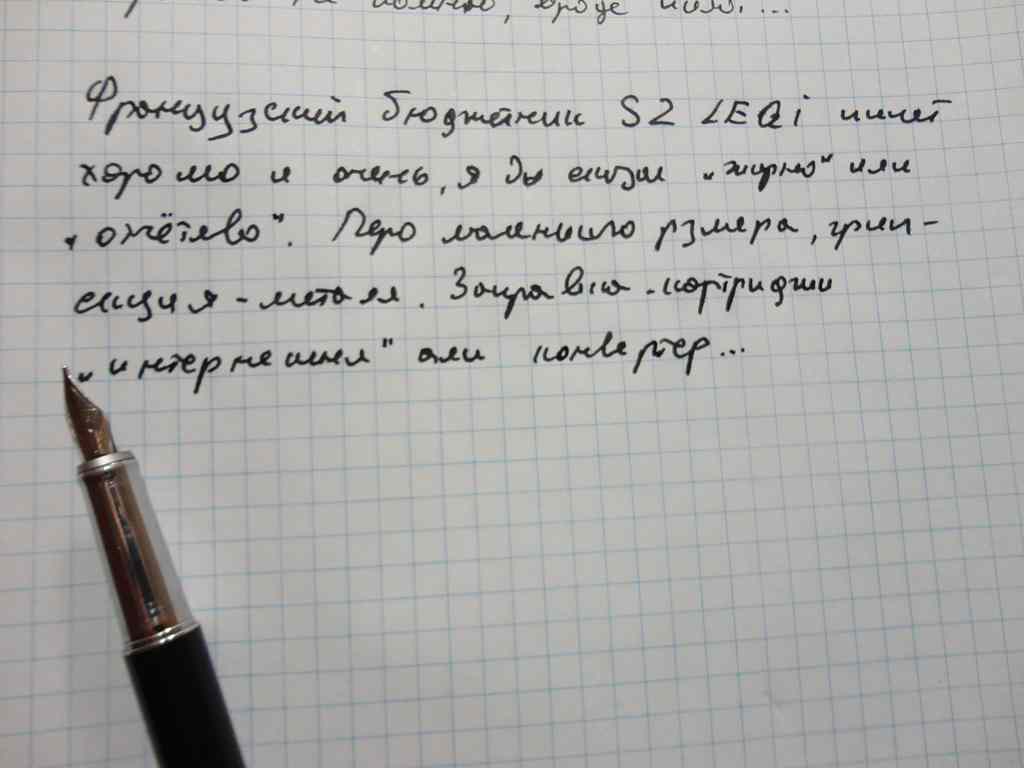 помню, вроде
Французский бюджетник S2 LEQi пишет
хорошо и очень, я бы сказал „жирно" или
„отчётливо". Перо маленького рзмера, грип-
секция - металл. Заправка - картриджи
„интернешнл" али конвертер...